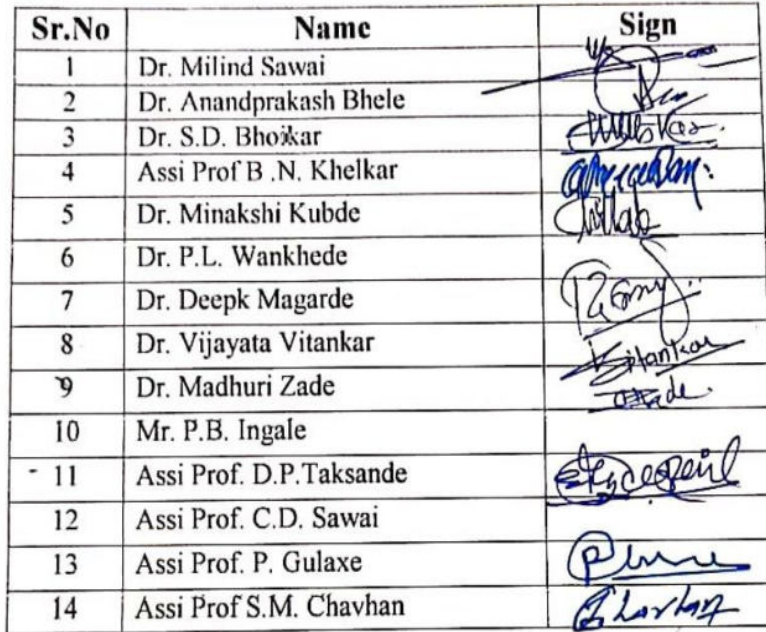 Sr.No Name Sign
1 Dr. Milind Sawai
2 Dr. Anandprakash Bhele
3 Dr. S.D. Bhoikar
4 Assi Prof B .N. Khelkar
5 Dr. Minakshi Kubde
6 Dr. P.L. Wankhede
7 Dr. Deepk Magarde
8 Dr. Vijayata Vitankar Vitankar
9 Dr. Madhuri Zade
10 Mr. P.B. Ingale
11 Assi Prof. D.P.Taksande
12 Assi Prof. C.D. Sawai
13 Assi Prof. P. Gulaxe
14 Assi Prof S.M. Chavhan